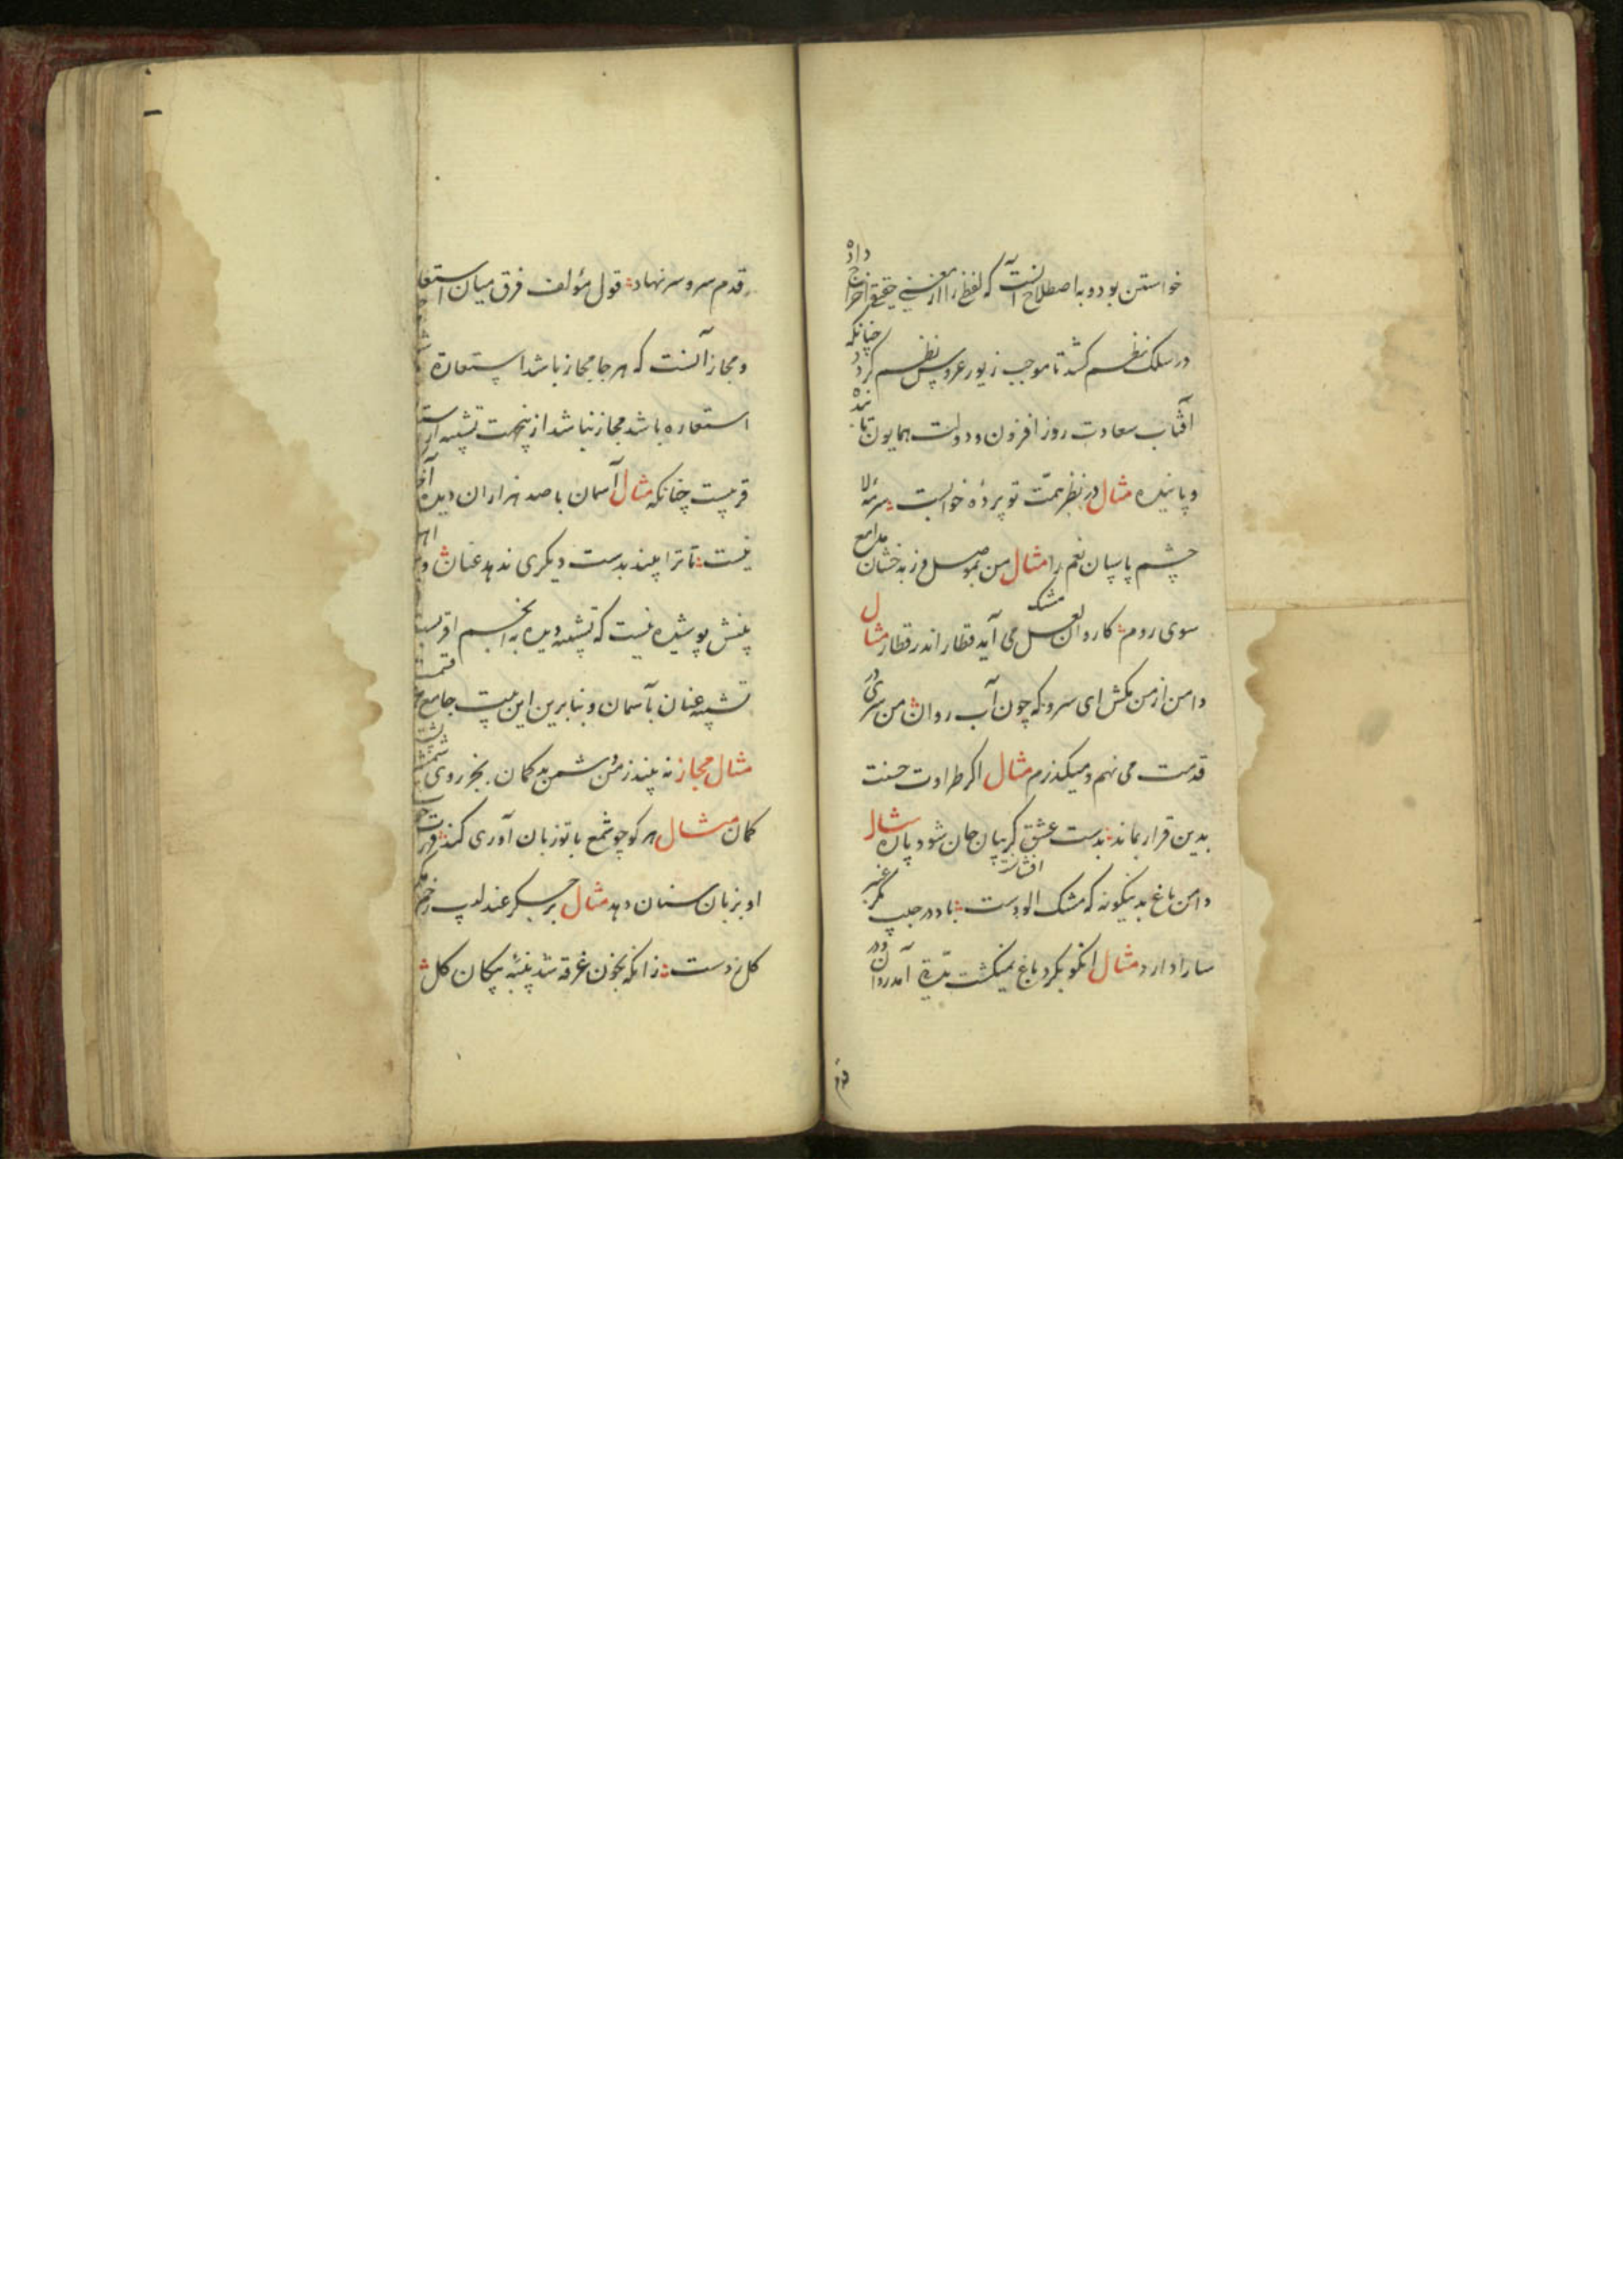 خواستن بود و به اصطلاح آنست که لفظ را از معنی حقیقی اخراج داده
در سلک نظم کشد تا موجب زیور عروس نظم کردد چنانکه
آفتاب سعادت روز افزون و دولت همایون تابنده
و پاینده مثال در نظر همت تو پرده خوابست سرمه لا
چشم پاسبان نعم را مثال من بموصل و ز بدخشان مدامع
سوی روم کاروان لعل می آید قطار اندر قطار مثال
دامن از من مکش ای سرو که چون آب روان من سری در
قدمت می نهم و میکذرم مثال اکر طراوت حسنت
بدین قرار بماند بدست عشق کریبان جان شود پاره مثال
دامن باغ بدینکونه که مشک الودست باد در جیب مکر عنبر
سارا دارد مثال انکو بکرد باغ نمیکشت آمد روان
قدم سرو سر نهاد قول مؤلف فرق میان استعا
و مجاز آنست که هر جا مجاز باشد استعاره
استعاره باشد مجاز نباشد از پنجهت تشبیه از
قریبست چنانکه مثال آسمان با صد هزاران دیده
نیست تا ترا بیند بدست دیکری ندهد عنان
بینش پوشیده نیست که تشبیه دیده به انجم اقربست
تشبیه عنان بآسمان و بنا برین این بیت جامع
مثال مجاز نه بیند ز من دشمن بد کمان بجز روی
کمان مثال هر کو چو شمع با تو زبان آوری کند
او بزبان سنان دهد مثال بر جکر عندلیب زخم
کل زدست زانکه بخون غرقه شد پنبه پیکان کل